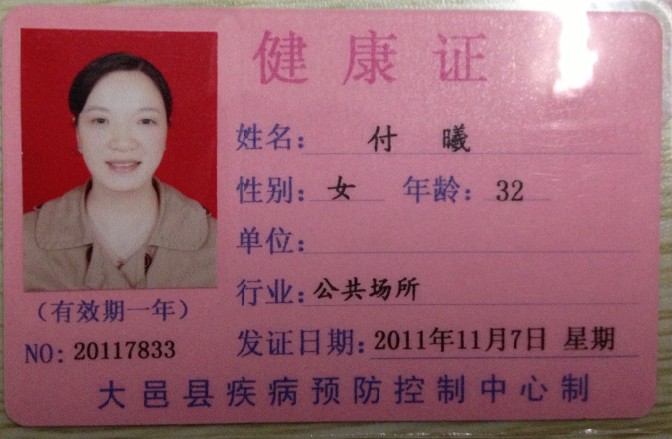 健康证
姓名：付 曦
性别：女 年龄：32
单位：
行业：公共场所
（有效期一年）
NO：20117833
发证日期：2011年11月7日 星期
大邑县疾病预防控制中心制